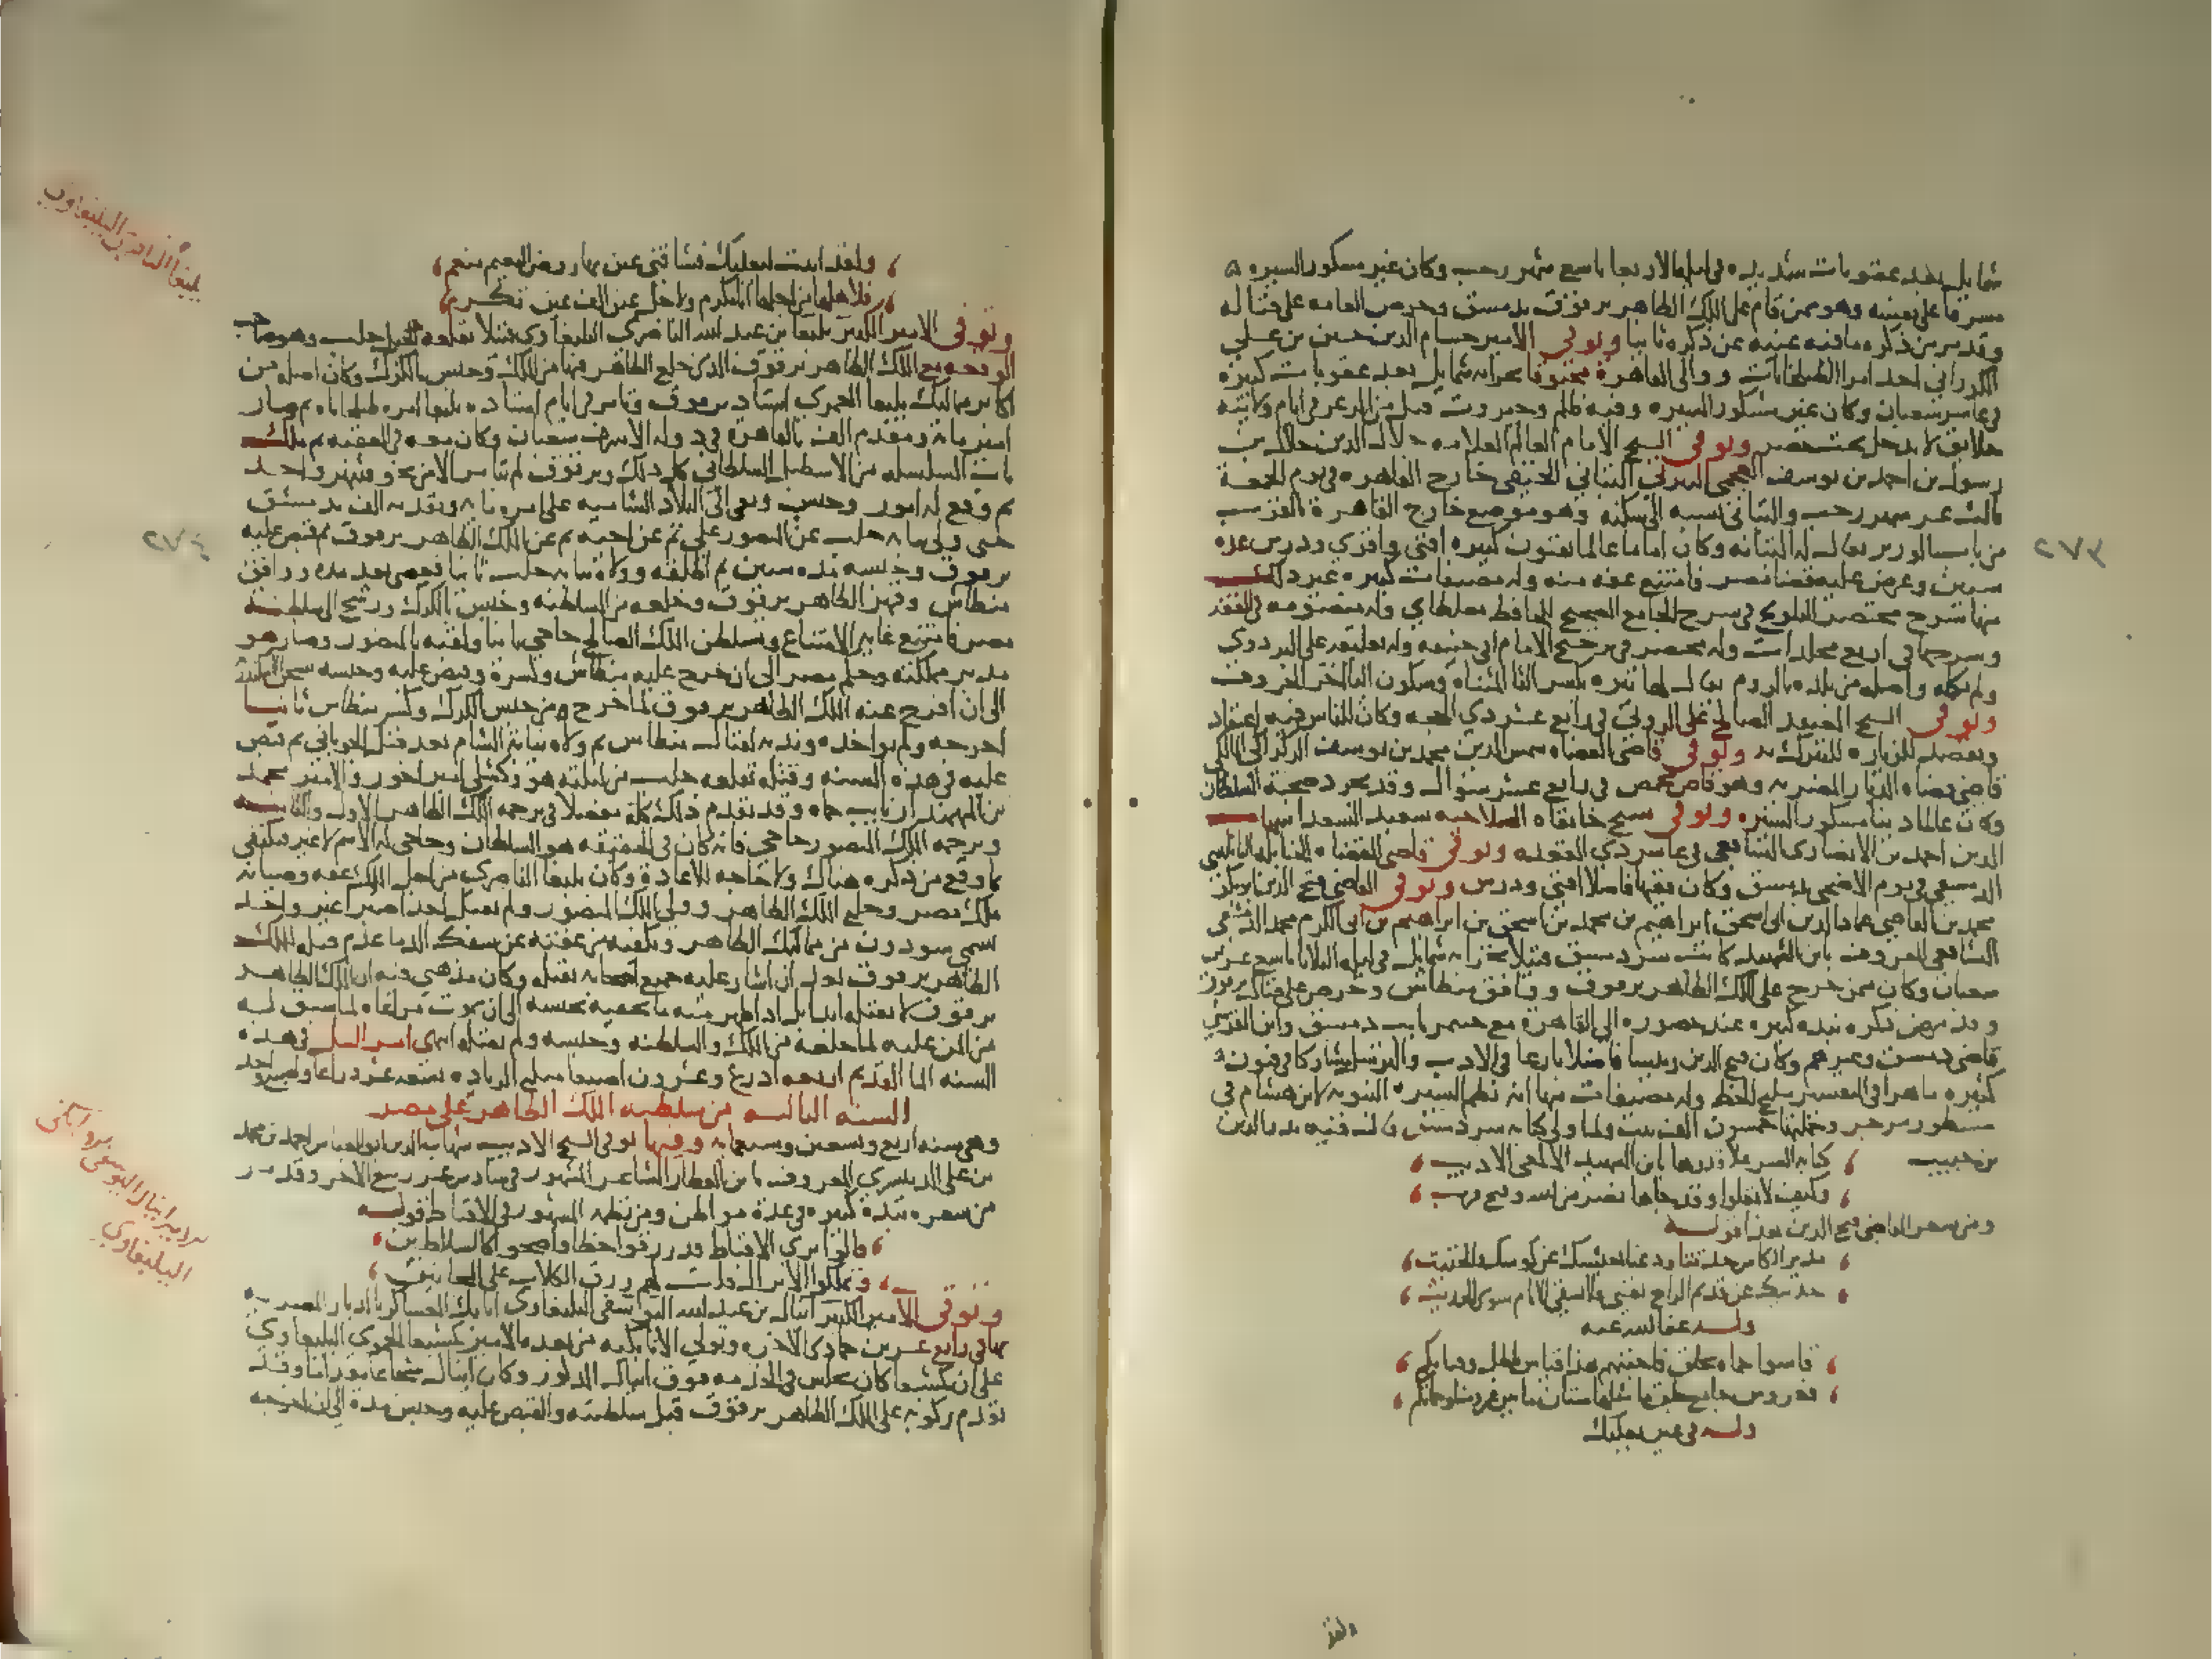 شمايل بعد عقوبات شديدة في ليلة الاربعا تاسع شهر رجب وكان غير مشكور السيرة
مسرفا على نفسه وهو ممن قام على الملك الظاهر برقوق بدمشق وحرض العامة على قتاله
وقد مر من ذكره ما فيه غنية عن ذكره ثانيا وتوفي الامير حسام الدين حسين بن علي
الكوراني احد امرا الطبلخانات ووالي القاهرة مخنوقا بخزانة شمايل بعد عقوبات كثيرة
في عاشر شعبان وكان غير مشكور السيرة وفيه ظلم وجبروت قتل من الزعر في ايام ولايته
خلايق لا تدخل تحت حصر وتوفي الشيخ الامام العالم العلامة جلال الدين جلال بن
رسول بن احمد بن يوسف العجمي التيري التباني الحنفي خارج القاهرة في يوم الجمعة
ثالث عشر شهر رجب والتباني نسبة الى سكنه وهو موضع خارج القاهرة بالقرب
من باب الوزير يقال له التبانة وكان اماما عالما بفنون كثيرة افتى واقرى ودرس عدة
سنين وعرض عليه قضا مصر فامتنع عفة منه وله مصنفات كثيرة غير ذلك
منها شرح مختصر التلويح في شرح الجامع الصحيح للحافظ مغلطاي وله منظومة في الفقه
وشرحها في اربع مجلدات وله مختصر في ترجيح الامام ابي حنيفة وله تعليقة على البزدوي
ولم يكمله واصله من بلدة بالروم يقال لها ثيرة بكسر الثا المثناة وسكون اليا اخر الحروف
وتوفي الشيخ المعتقد الصالح علي الروبي في رابع عشر ذي الحجة وكان للناس فيه اعتقاد
ويقصد للزيارة للتبرك به وتوفي قاضي القضاة شمس الدين محمد بن يوسف الركراكي المالكي
قاضي قضاة الديار المصرية وهو قاض بحمص في رابع عشر شوال وقد تجرد صحبة السلطان
وكان عالما دينا مشكور السيرة وتوفي شيخ خانقاه الصلاحية سعيد السعدا شهاب
الدين احمد بن الانصاري الشافعي في عاشر ذي القعدة وتوفي قاضي القضاة الحنابلة النابلسي
الدمشقي في يوم الاضحى بدمشق وكان فقيها فاضلا افتى ودرس وتوفي القاضي فتح الدين ابو بكر
محمد بن القاضي عماد الدين ابي اسحق ابراهيم بن محمد بن اسحق بن ابراهيم بن ابي الكرم محمد الدمشقي
الشافعي المعروف بابن الشهيد كاتب سر دمشق قتلا بخزانة شمايل في ليلة الثلاثا تاسع عشرين
شعبان وكان ممن خرج على الملك الظاهر برقوق ووافق منطاش وحرض على قتال برقوق
وقد مر من ذكره نبذة كبيرة عند حضوره الى القاهرة مع جنتمر نايب دمشق وابن القرشي
قاضي دمشق وغيرهم وكان فتح الدين رييسا فاضلا بارعا في الادب والترسل مشاركا في فنون
كثيرة ماهرا في التفسير مليح الخط وله مصنفات منها انه نظم السيرة النبوية لابن هشام في
مسطور مرجز وجملتها خمسون الف بيت ولما ولي كتابة سر دمشق قال فيه بدر الدين
بن حبيب
كتابة السر علا قدرها بابن الشهيد الالمعي الاديب
وكيف لا تعلوا وقد جاها نصر من الله وفتح قريب
ومن شعر القاضي فتح الدين هذا قوله
مدير الكاس حدثنا ودعنا بعيشك عن كوسك والحثيث
حديثك عن قديم الراح يغني ولا تسقي الانام سوى الحديث
وله عفا الله عنه
قاسوا حماة بجلق فاجبتهم هذا قياس باطل وحياتكم
فعروس جامع جلق ما مثلها شتان بين عروسنا وحماتكم
وله في عين بعلبك
ولقد
ولقد اتيت لبعلبك فشاقني عين بها روض النعيم منعم
فلاهلها من اجلها انا مكرم ولاجل عين الف عين تكرم
وتوفي الامير الكبير يلبغا بن عبد الله الناصري اليلبغاوي قتيلا بقلعة حلب وهو صاحب
الوقعة مع الملك الظاهر برقوق الذي خلع الظاهر فيها من الملك وحبس بالكرك وكان اصله من
اكابر مماليك يلبغا العمري استاذ برقوق وتامر في ايام استاذه يلبغا امرة طبلخاناه ثم صار
امير ماية ومقدم الف بالقاهرة في دولة الاشرف شعبان وكان معه في العقبة ثم ملك
باب السلسلة من الاسطبل السلطاني كل ذلك وبرقوق لم يتامر الا من نحو شهر واحد
ثم وقع له امور وحبس ونفي الى البلاد الشامية على امرة ماية وتقدمة الف بدمشق
حتى ولي نيابة حلب عن المنصور علي ثم عن اخيه ثم عن الملك الظاهر برقوق ثم قبض عليه
برقوق وحبسه مدة سنين ثم اطلقه وولاه نيابة حلب ثانيا فعصى بعد مدة ووافق
منطاش وقهر الظاهر برقوق وخلعه من السلطنة وحبس بالكرك ورشح الى سلطنة
مصر فامتنع غاية الامتناع وسلطن الملك الصالح حاجي ثانيا ولقبه بالمنصور وصار هو
مدبر مملكته وحكم مصر الى ان خرج عليه منطاش وكسره وقبض عليه وحبسه بسجن الاسكندرية
الى ان افرج عنه الملك الظاهر برقوق لما خرج من حبس الكرك وكسر منطاش ثانيا
اخرجه ولم يواخذه وندبه لقتال منطاش ثم ولاه نيابة الشام بعد قتل الجوباني ثم قبض
عليه في هذه السنة وقتله بقلعة حلب من ليلته هو وكشلي امير اخور والامير محمد
بن المهمندار نايب حماة وقد تقدم ذلك كله مفصلا في ترجمة الملك الظاهر الاولى والثانية
وترجمة الملك المنصور حاجي فانه كان في الحقيقة هو السلطان وحاجي له الاسم لا غير فيكتفي
بما وقع من ذكره هناك ولا حاجة للاعادة وكان يلبغا الناصري من اجل الملوك عفة وصيانة
ملك مصر وخلع الملك الظاهر وولى الملك المنصور ولم يقتل احدا صبرا غير واحد
سمي سودون من مماليك الظاهر ويكفيه من عفته عن سفك الدما عدم قتله الملك
الظاهر برقوق بعد ان اشار عليه جميع اصحابه بقتله وكان مذهبي فيه ان الملك الظاهر
برقوق لا يقتله ابدا بل اذا ظهر منه ما يخفيه يحبسه الى ان يموت مراعاة لما سبق له
من المن عليه لما خلعه من الملك والسلطنة وحبسه ولم يقتله انتهى امر النيل في هذه
السنة الما القديم اربعة اذرع وعشرون اصبعا مبلغ الزيادة تسعة عشر ذراعا واصبع واحد
السنة الثالثة من سلطنة الملك الظاهر على مصر
وهي سنة اربع وتسعين وسبعماية وفيها توفي الشيخ الاديب شهاب الدين ابو العباس احمد بن محمد
بن علي الدنيسري المعروف بابن العطار الشاعر المشهور في سادس عشر ربيع الاخر وقد مر
من شعره نبذة كبيرة في عدة مواطن ومن نظمه المشهور في الاقباط قوله
قالوا ترى الاقباط قد رزقوا حظا واضحوا كالسلاطين
وتملكوا الاتراك قلت لهم رزق الكلاب على المجانين
وتوفي الامير الكبير اينال بن عبد الله اليوسفي اليلبغاوي اتابك العساكر بالديار المصرية
بها في رابع عشرين جمادى الاخرة وتولى الاتابكية من بعده الامير كمشبغا الحموي اليلبغاوي
على ان كمشبغا كان يجلس في الخدمة فوق اينال المذكور وكان اينال شجاعا مقداما وقد
تقدم ركوبه على الملك الظاهر برقوق قبل سلطنته والقبض عليه وحبس مدة الى ان اخرجه
يلبغا الناصري اليلبغاوي
الامير اينال اليوسفي
اليلبغاوي
٢٧٣
٢٧٤